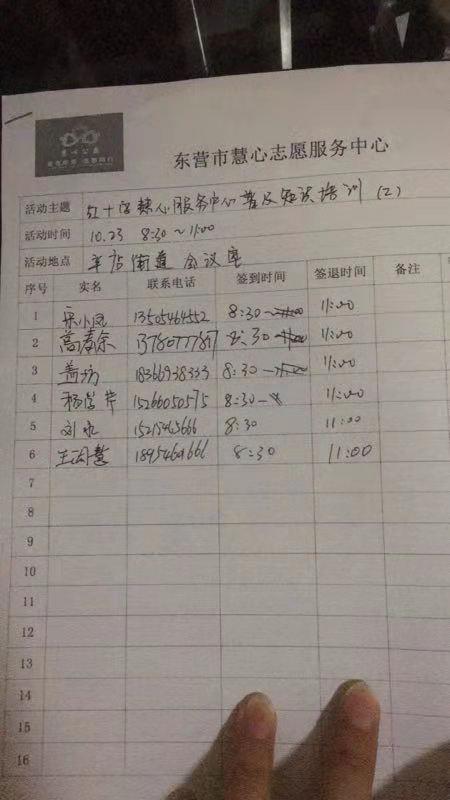 东营市慧心志愿服务中心
活动主题 红十字慧心服务中心普及知识培训(2)
活动时间 10.23 8:30~11:00
活动地点 辛店街道会议室
序号 实名 联系电话 签到时间 签退时间 备注
1 宋小凤 13505464552 8:30 11:00
2 13780777817 8:30 11:00
3 18366938333 8:30 11:00
4 15266050575 8:30 11:00
5 8:30 11:00
6 8:30 11:00
7
8
9
10
11
12
13
14
15
16